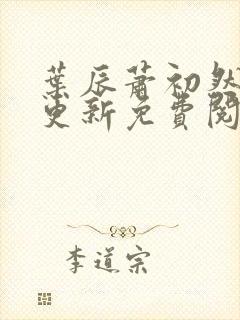 葉辰蕭初然
更新免費閱
李道宗